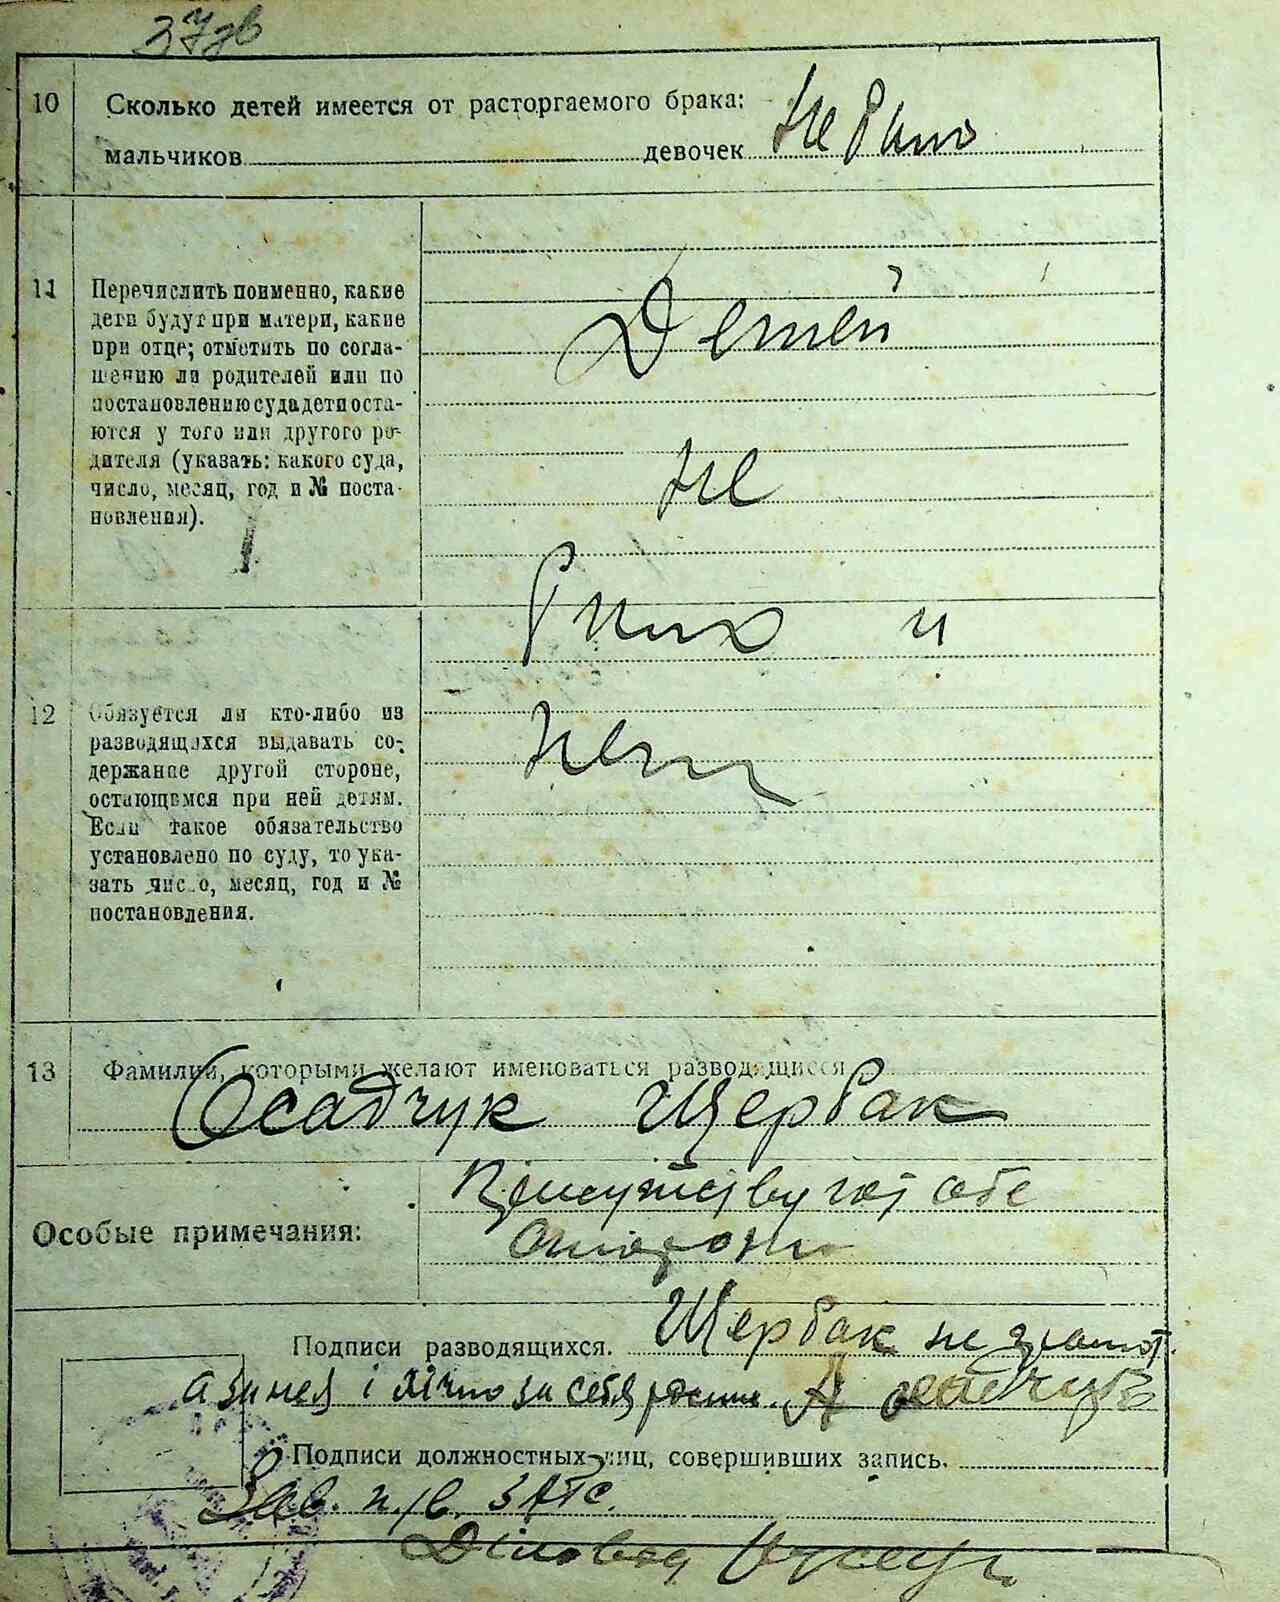 37зв
10 Сколько детей имеется от расторгаемого брака:
мальчиков девочек не було
11 Перечислить поименно, какие
дети будут при матери, какие
при отце; отметить по согла-
шению ли родителей или по
постановлению суда дети оста-
ются у того или другого ро-
дителя (указать: какого суда,
число, месяц, год и № поста-
новления).
Детей
не
було и
нет
12 Обязуется ли кто-либо из
разводящихся выдавать со-
держание другой стороне,
остающемся при ней детям.
Если такое обязательство
установлено по суду, то ука-
зать число, месяц, год и №
постановления.
13 Фамилии, которыми желают именоваться разводящиеся
Осадчук Щербак
Особые примечания:
Присутствуют обе
стороны
Подписи разводящихся. Щербак не
а за нея і лічно за себя А Осадчук
Подписи должностных лиц, совершивших запись.
Зав. п/в. ЗАГС.
Діловод